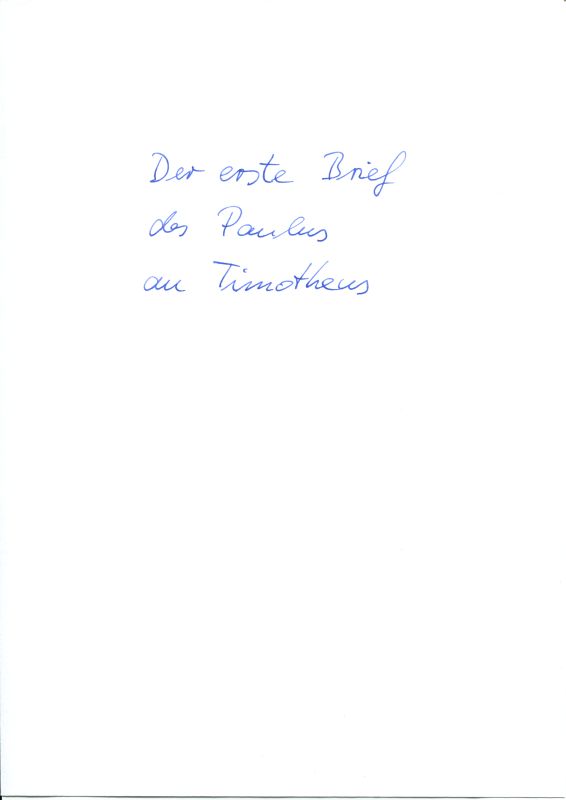 Der erste Brief
des Paulus
an Timotheus